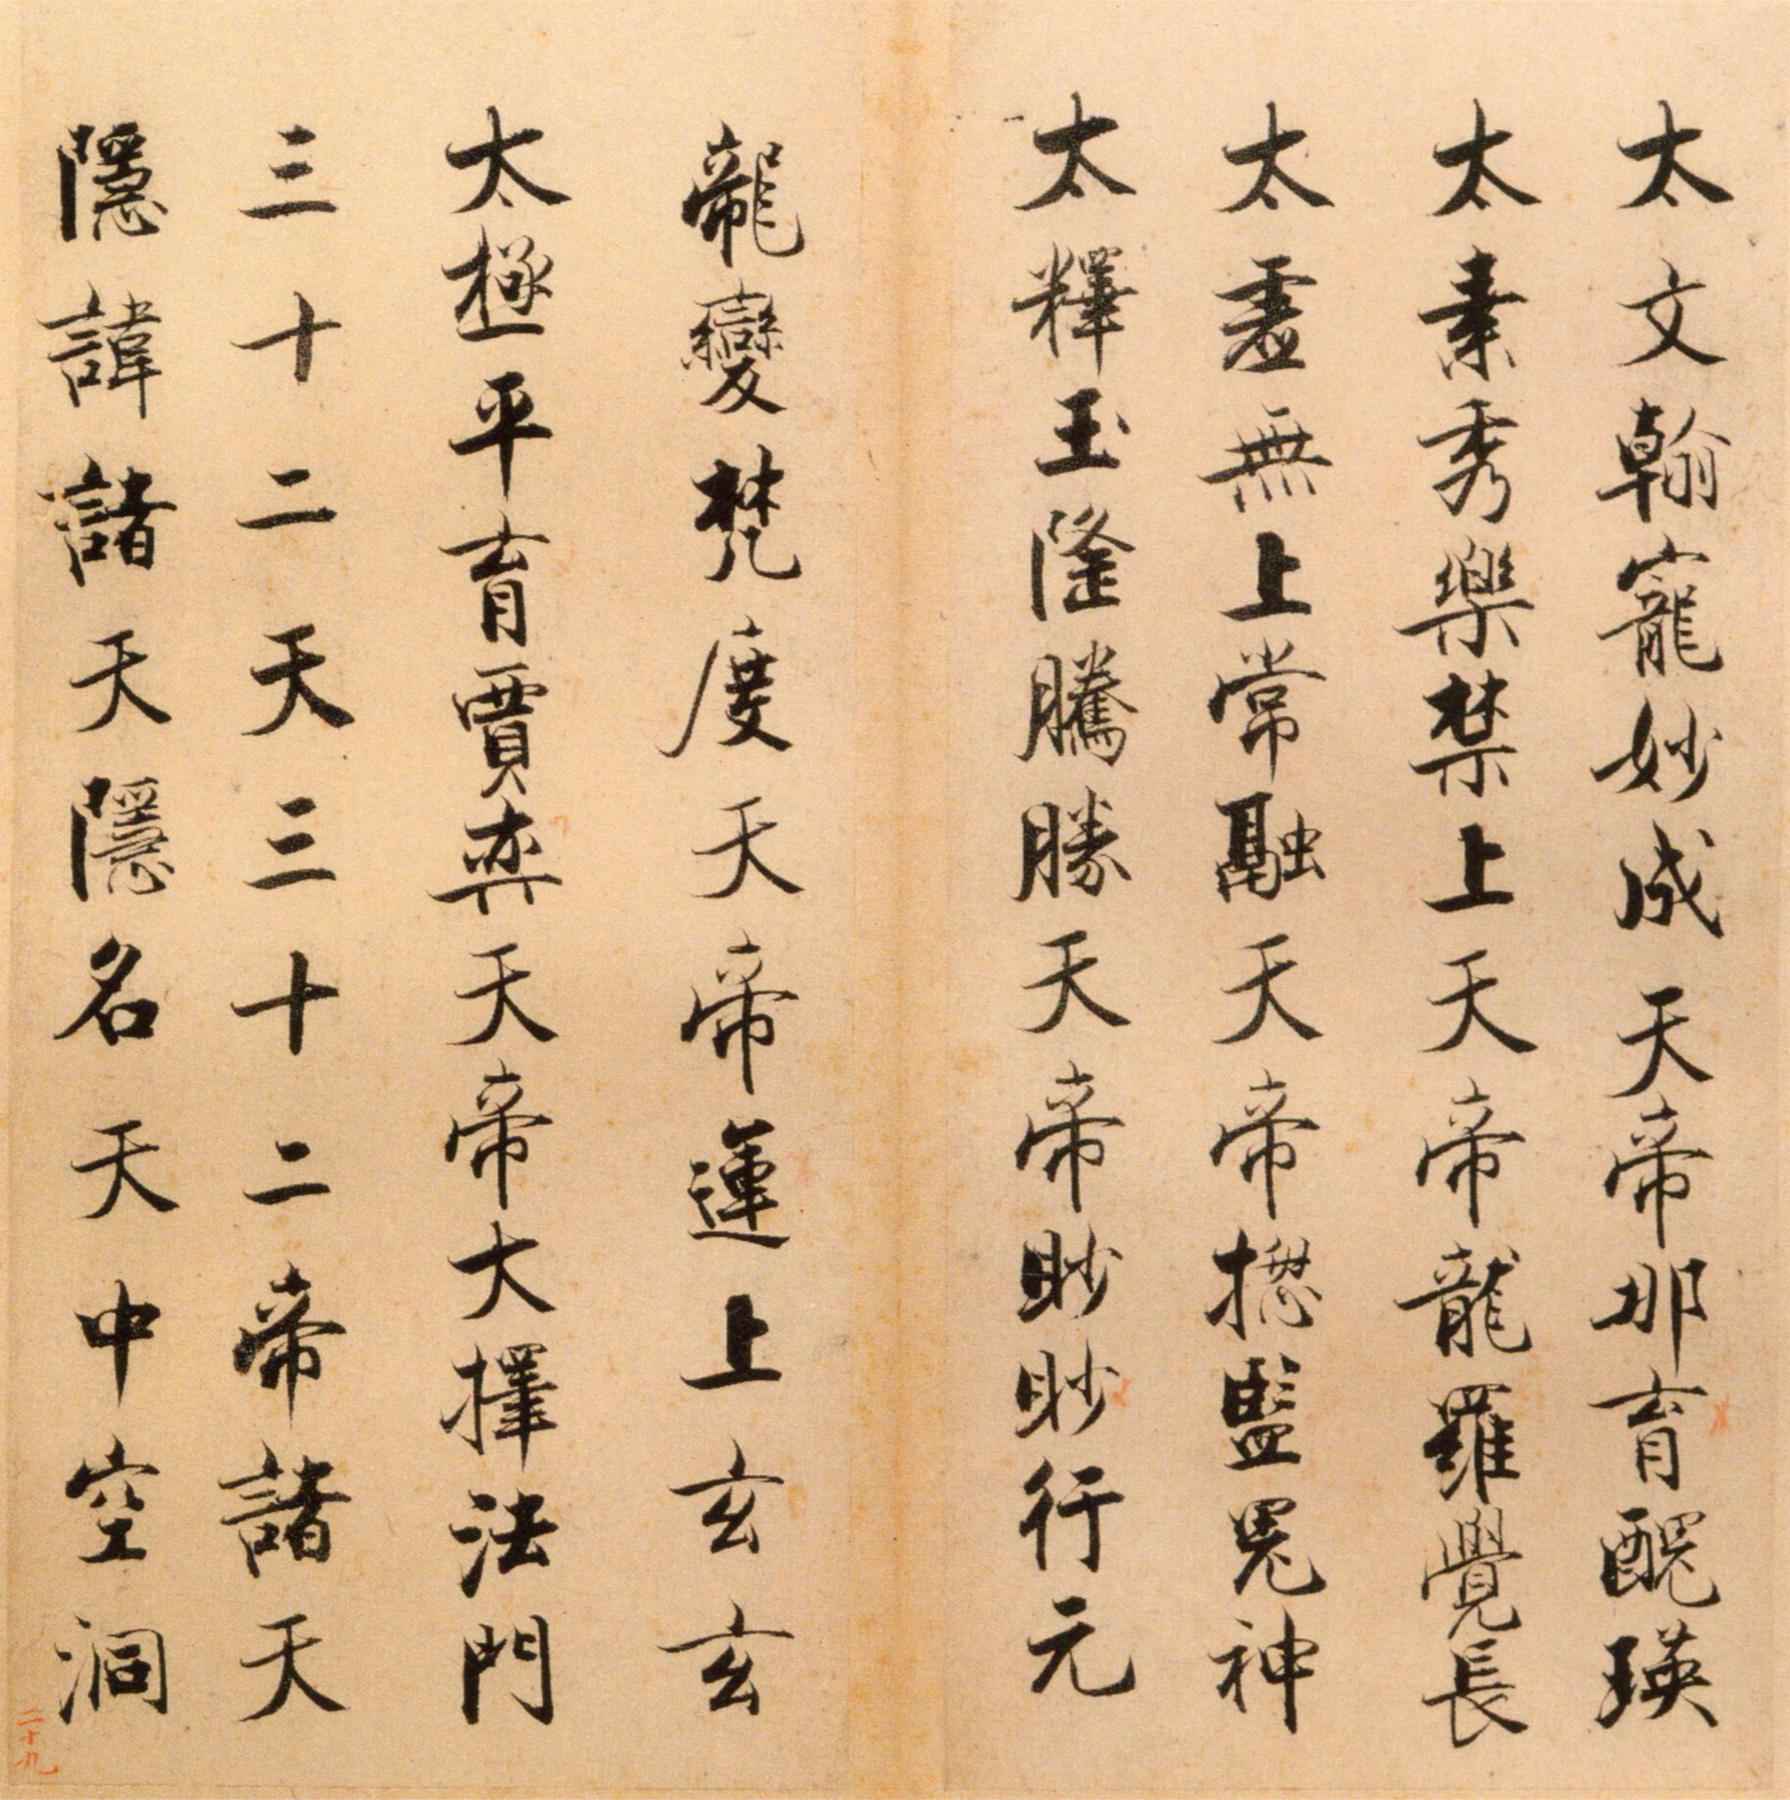 太文翰寵妙成天帝那育醜瑛
太素秀樂禁上天帝龍羅覺長
太虛無上常融天帝摠監鬼神
太釋玉隆騰勝天帝眇眇行元
龍變梵度天帝運上玄玄
太極平育賈弈天帝大擇法門
三十二天三十二帝諸天
隱諱諸天隱名天中空洞
二十九